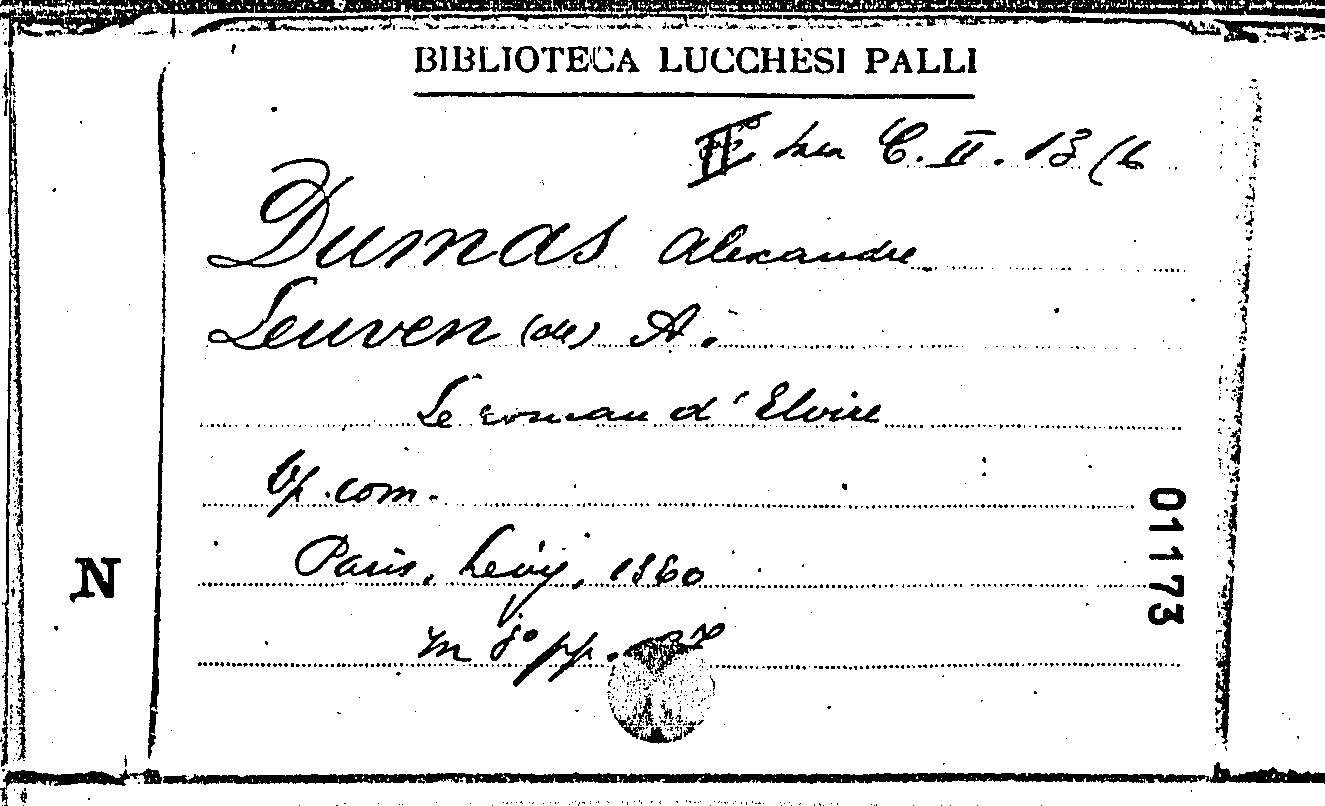 BIBLIOTECA LUCCHESI PALLI
C. II. 13 (6
Dumas Alexandre
Leuven (de) A.
Le roman d'Elvire
Op. com.
Paris, Levy, 1860
in 8° pp.
N
01173